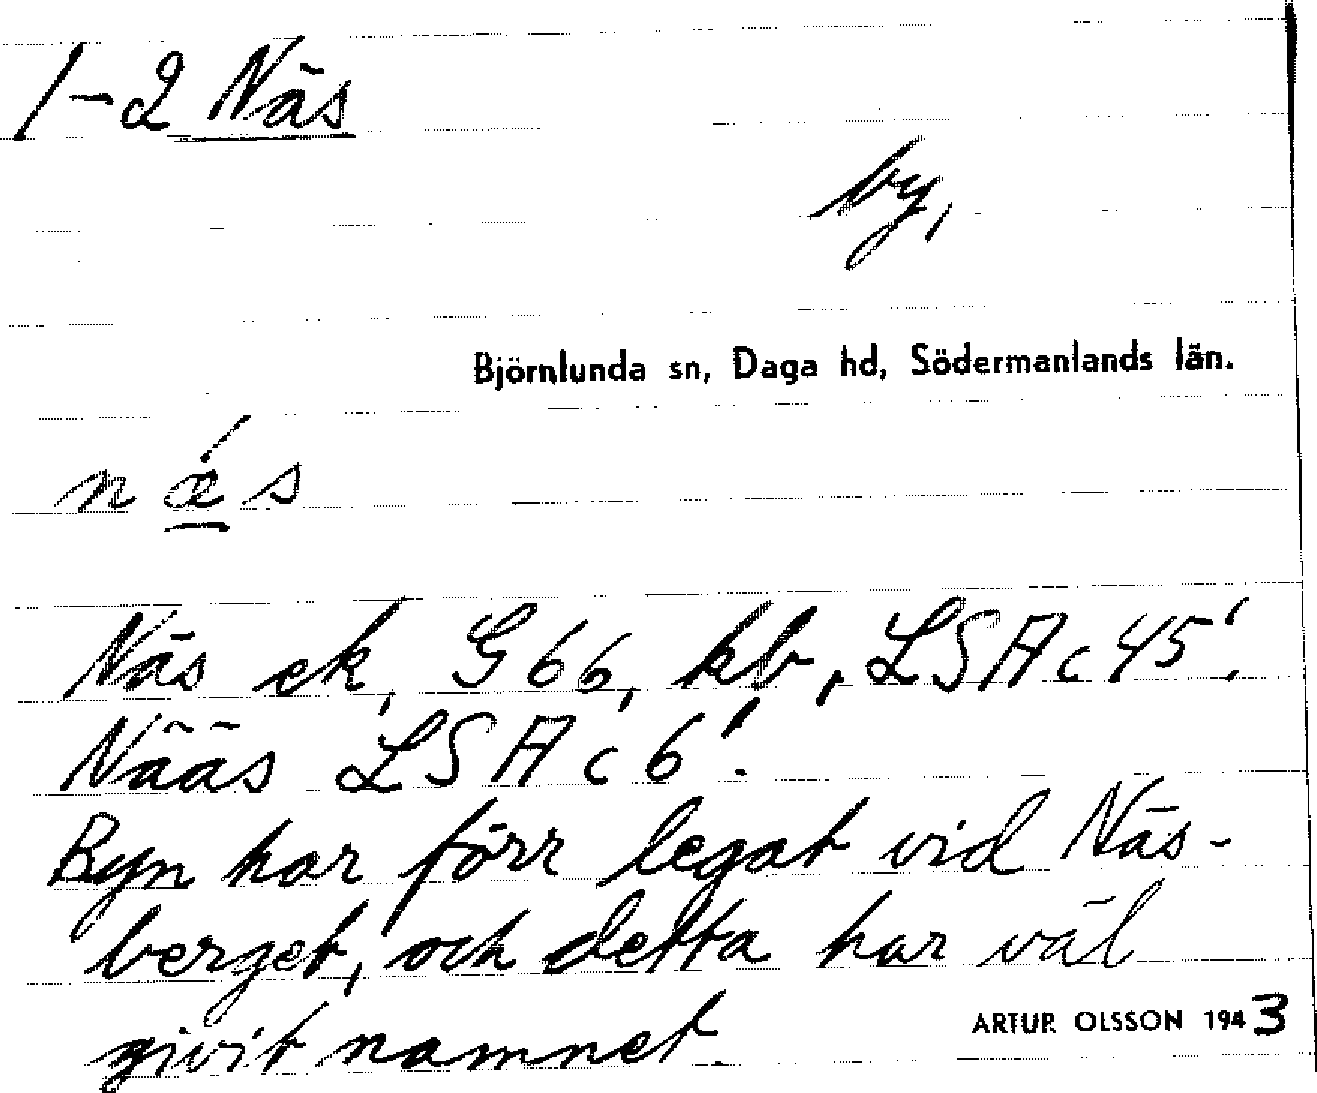 1-2 Näs
by,
Björnlunda sn, Daga hd, Södermanlands län.
nǽs
Näs ek, G 66, kb, LSA c 45!
Nääs LSA c 6!
Byn har förr legat vid Näs-
berget, och detta har väl
givit namnet.
ARTUR OLSSON 1943